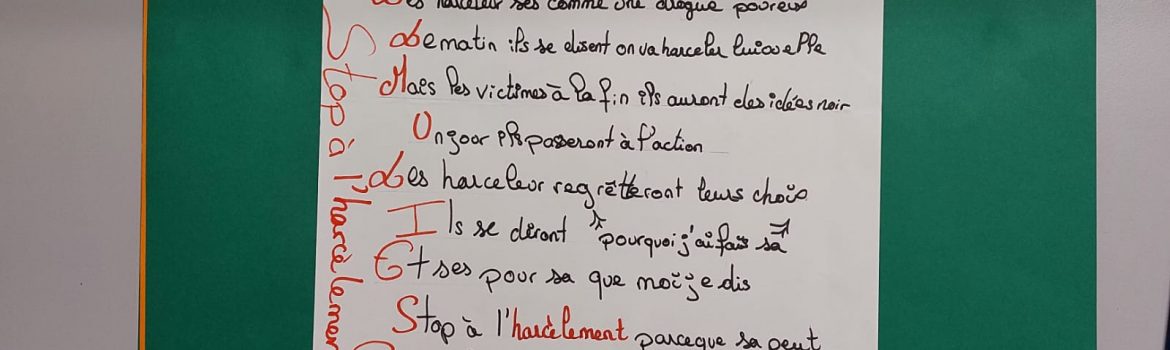 Les harceleur ses comme une drogue poureus
Le matin ils se disent on va harceler lui ou elle
Mais les victimes à la fin ils auront des idées noir
Un jour ils passeront à l'action
Les harceleur regrètteront leurs choix
Ils se diront pourquoi j'ai fais sa
Et ses pour sa que moi je dis
Stop à l'harcèlement parceque sa peut
Stop à l'harcèlement